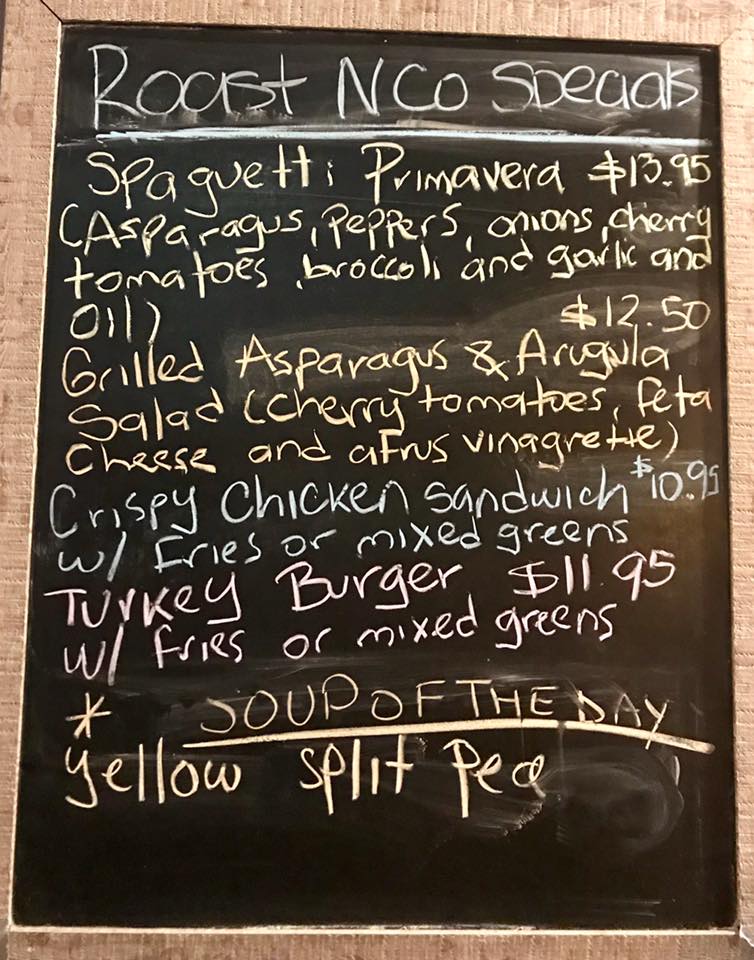 Roast NCo Specials
Spaguetti Primavera $13.95
(Asparagus, Peppers, onions, cherry
tomatoes, broccoli and garlic and
Oil)
$12.50
Grilled Asparagus & Arugula
Salad (cherry tomatoes, feta
cheese and citrus vinagrette)
Crispy Chicken Sandwich $10.95
w/ Fries or mixed greens
Turkey Burger $11.95
w/ fries or mixed greens
* SOUP OF THE DAY
yellow split Pea